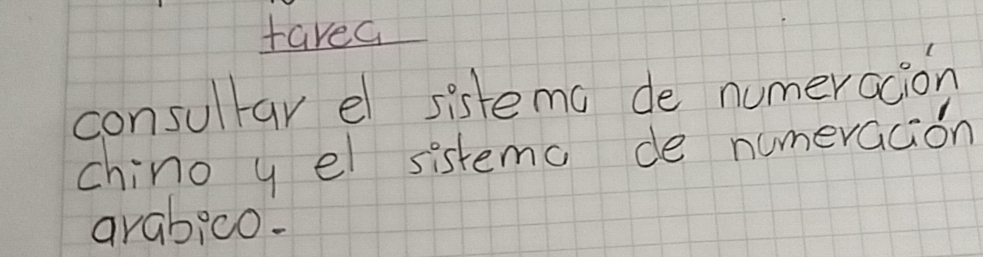 tarea
consultar el sistema de numeración
chino y el sistema de numeración
arabico.